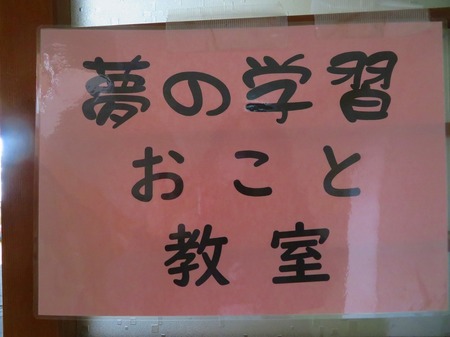 夢の学習
おこと
教室